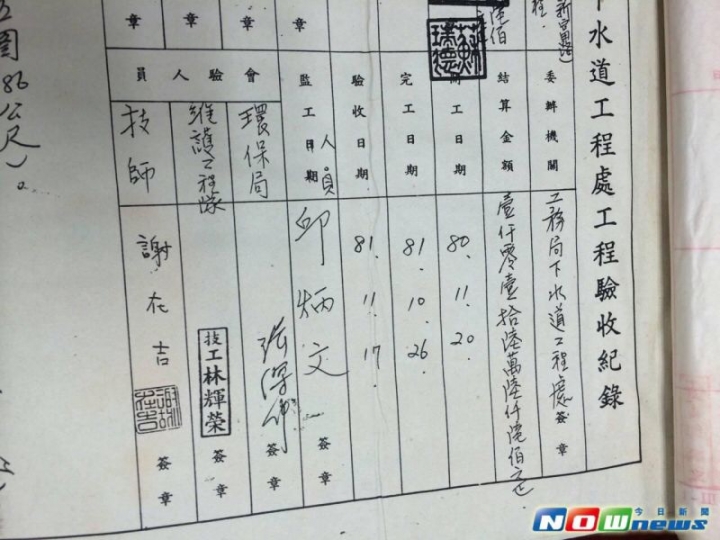 下水道工程處工程驗收紀錄
委辦機關
工務局下水道工程處
簽章
結算金額
壹仟零壹拾陸萬陸仟陸佰元正
開工日期
80.11.20
完工日期
81.10.26
驗收日期
81.11.17
監工日期
人員
邱炳文
簽章
會驗人員
環保局
簽章
維護工程隊
技工林輝榮
簽章
技師
謝在吉
謝在吉
簽章
章
章
章
章
陸佰
程
蘇瑞德
五圈86公尺)。
今日新聞
NOWnews